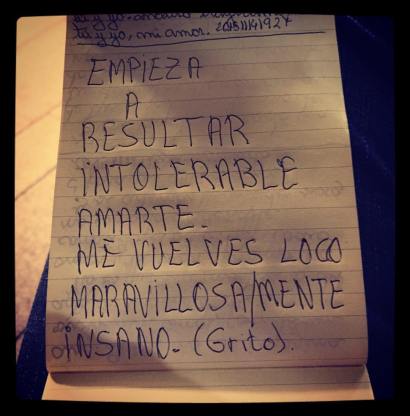 tú y yo, mi amor.
EMPIEZA
A
RESULTAR
INTOLERABLE
AMARTE.
ME VUELVES LOCO
MARAVILLOSA/MENTE
INSANO. (Grito).